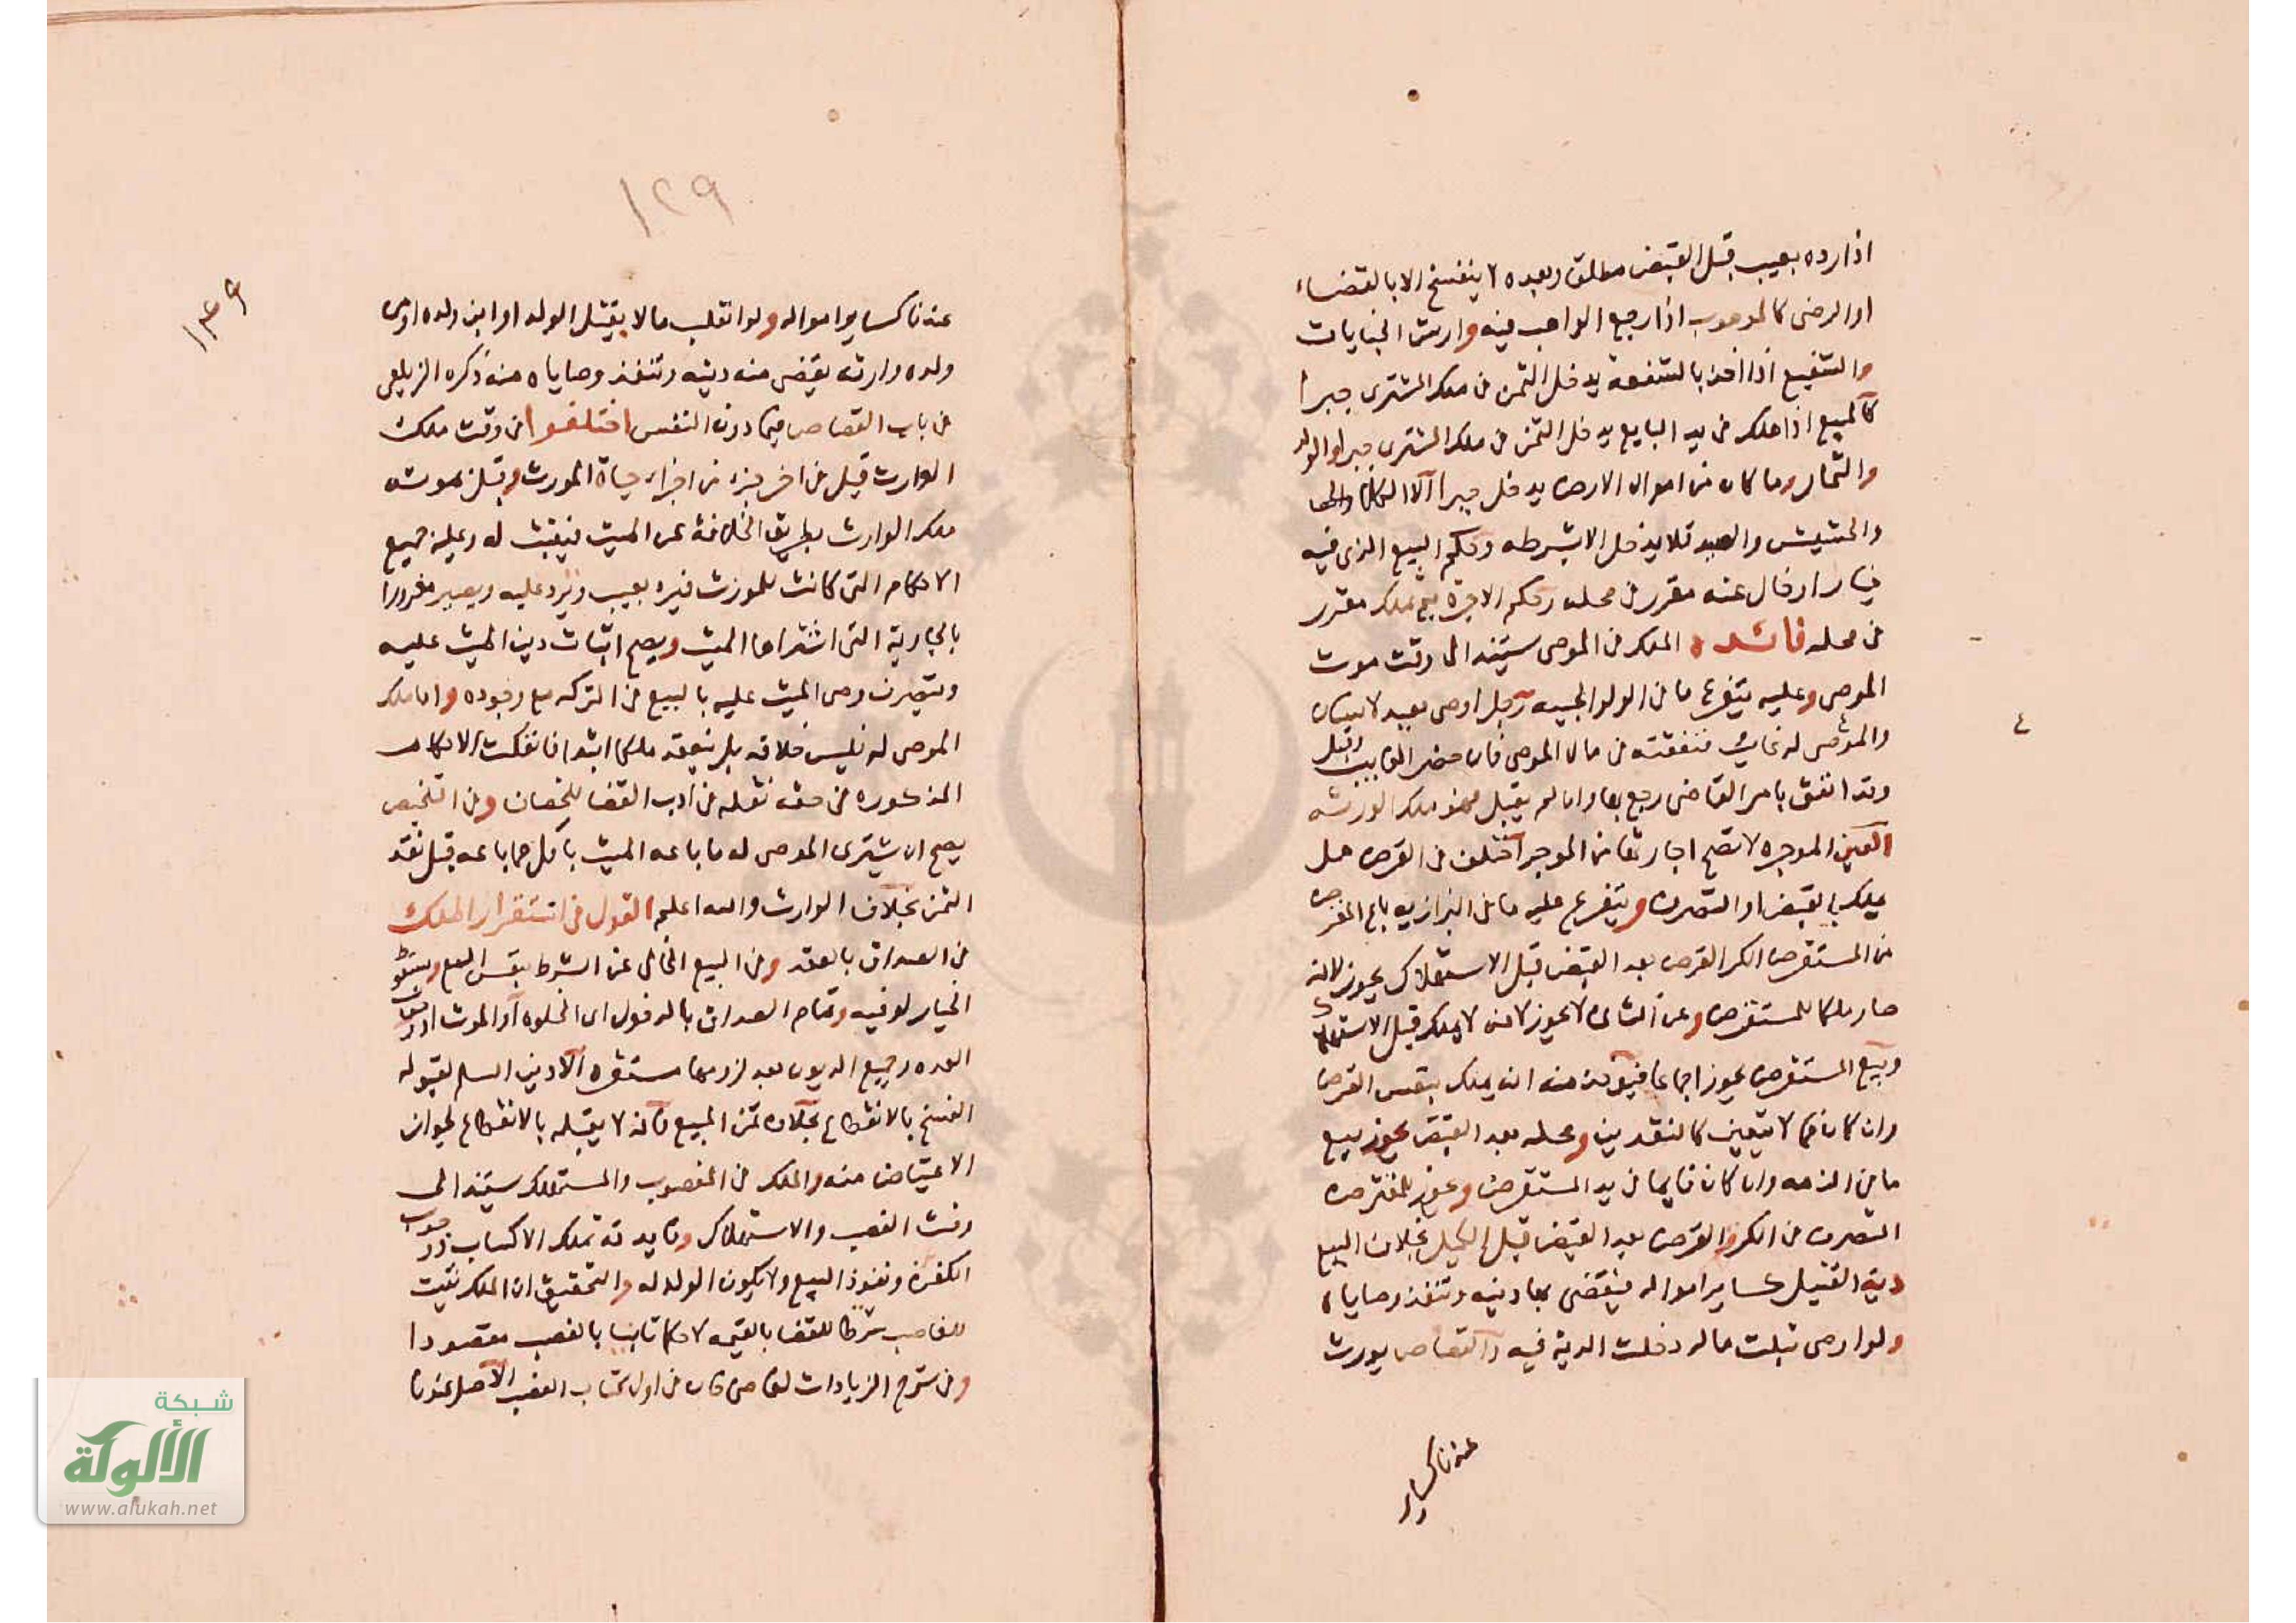 اذا رده بعيب قبل القبض مطلقا وبعده لا ينفسخ الا بالقضاء
او الرضى كالموهوب اذا رجع الواهب فيه وارش الجنايات
والشفيع اذا اخذ بالشفعة يدخل الثمن في ملك المشترى جبرا
كالمبيع اذا هلك في يد البايع يدخل الثمن في ملك المشترى جبرا والولد
والثمار وما كان من اموال الارض يدخل جبرا الا الكلاء
والحشيش والصيد فلا يدخل الا بشرطه وحكم البيع الذى فيه
خيار ادخال عنه مقرر في محله وحكم الاجرة تملك مقرر
في محله فائده الملك في الموصى يستند الى وقت موت
الموصى وعليه يتفرع ما في الولوالجيه رجل اوصى بعبد لانسان
والموصى له غائب فنفقته في مال الموصى فان حضر الغايب وقبل
وقد انفق بامر القاضى رجع بها وان لم يقبل فهو ملك الورثه
العين الموجره لا تصح اجارتها من الموجر اختلف في القرض هل
يملك بالقبض او التصرف ويتفرع عليه ما في البزازيه باع المقرض
من المستقرض الكر القرض بعد القبض قبل الاستهلاك يجوز لانه
صار ملكا للمستقرض وعن الثانى لا يجوز لانه لا يملك قبل الاستهلاك
وبيع المستقرض يجوز اجماعا فيه منه انه يملك بنفس القرض
وان كان مما لا يتعين كالنقدين ومحله بعد القبض يجوز بيع
ما في الذمه وان كان قايما في يد المستقرض ويجوز للمقترض
التصرف في الكر القرض بعد القبض قبل الكيل بخلاف البيع
دية القتيل كساير امواله فيقضى بها دينه وتنفذ وصاياه
ولو اوصى بثلث ماله دخلت الدية فيه والقصاص يورث
عنه كساير
١٢٩
١٢٩
عنه كساير امواله ولو انقلب مالا بقتل الولد او ابن ولده او
ولده وارثه يقضى منه دينه وتنفذ وصاياه منه ذكره الزيلعى
في باب القصاص فيما دون النفس اختلفوا في وقت ملك
الوارث قيل في اخر جزء من اجزاء حياة المورث وقيل بموته
ملك الوارث بطريق الخلافة عن الميت فيثبت له وعليه جميع
الاحكام التى كانت للمورث فيرده بعيب ويرد عليه ويصير مغرورا
بالجارية التى اشتراها الميت ويصح اثبات دين الميت عليه
ويتصرف وصى الميت عليه بالبيع في التركه مع وجوده واما ملك
الموصى له فليس خلافه بل بعقد ملكا ابتداء فانعكست الاحكام
المذكوره في حقه نقله في ادب القضا للخصاف وفي التلخيص
يصح ان يشترى الموصى له ما باعه الميت باقل مما باعه قبل نقد
الثمن بخلاف الوارث والله اعلم القول في استقرار الملك
في الصداق بالعقد وفي البيع الخالى عن الشرط بنفس البيع وبسقوط
الخيار لو فيه وتمام الصداق بالدخول اى الخلوه او الموت او وجوب
العده وجميع الديون بعد لزومها مستقره الا دين السلم لقبوله
الفسخ بالانقطاع بخلاف ثمن المبيع فانه لا يقبله بالانقطاع لجواز
الاعتياض منه والملك في المغصوب والمستهلك يستند الى
وقت الغصب والاستهلاك وفايدته تملك الاكساب ووجوب
الكفن ونفوذ البيع ولا يكون الولد له والتحقيق ان الملك يثبت
للغاصب شرطا للقضا بالقيمه لا حكما ثابتا بالغصب مقصودا
وفي شرح الزيادات لقاضى خان في اول كتاب الغصب الاصل
شبكة
الألوكة
www.alukah.net